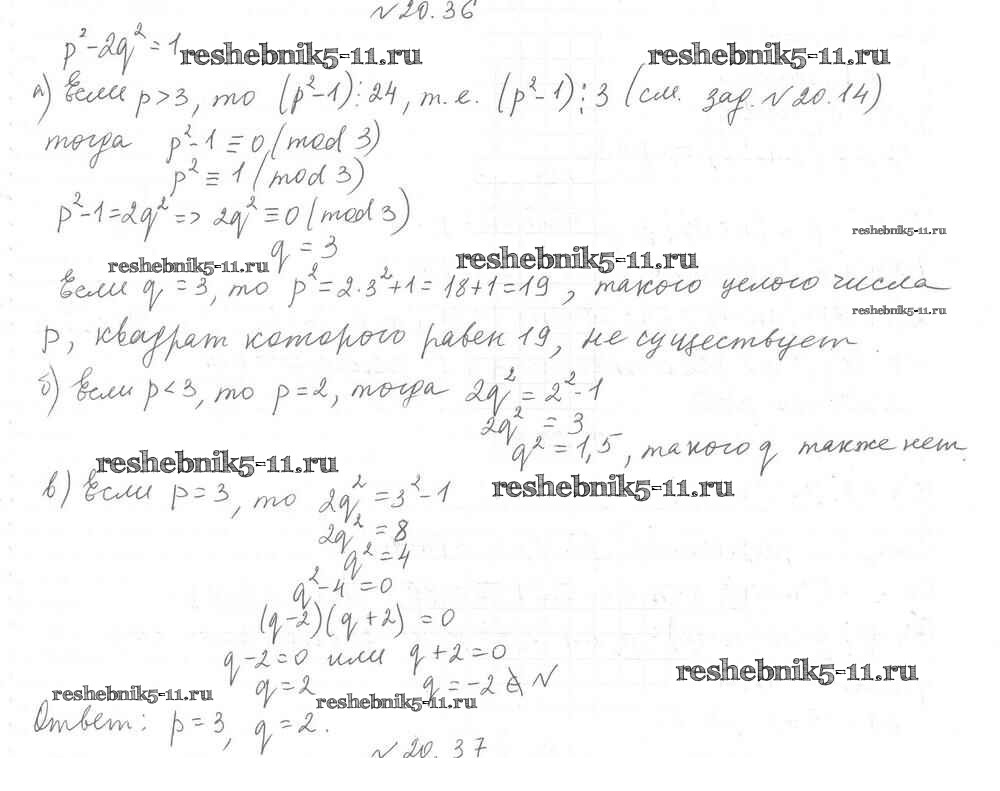 №20.36
p²-2q²=1
reshebnik5-11.ru reshebnik5-11.ru
а) Если p>3, то (p²-1)⋮24, т.е. (p²-1)⋮3 (см. зад. №20.14)
тогда p²-1≡0 (mod 3)
p²≡1 (mod 3)
p²-1=2q² => 2q²≡0 (mod 3)
reshebnik5-11.ru
q=3
reshebnik5-11.ru reshebnik5-11.ru
Если q=3, то p²=2·3²+1=18+1=19, такого целого числа
reshebnik5-11.ru
p, квадрат которого равен 19, не существует.
б) Если p<3, то p=2, тогда 2q²=2²-1
2q²=3
q²=1,5, такого q также нет.
reshebnik5-11.ru
в) Если p=3, то 2q²=3²-1
reshebnik5-11.ru
2q²=8
q²=4
q²-4=0
(q-2)(q+2)=0
q-2=0 или q+2=0
reshebnik5-11.ru
q=2 q=-2 ∉ N
reshebnik5-11.ru reshebnik5-11.ru
Ответ: p=3, q=2.
№20.37